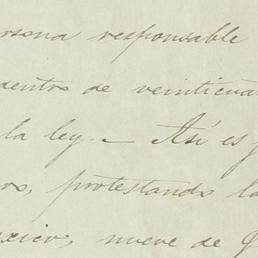 ersona responsable
dentro de veinticua
la ley.— Así es
os, protestando la
xico, nueve de